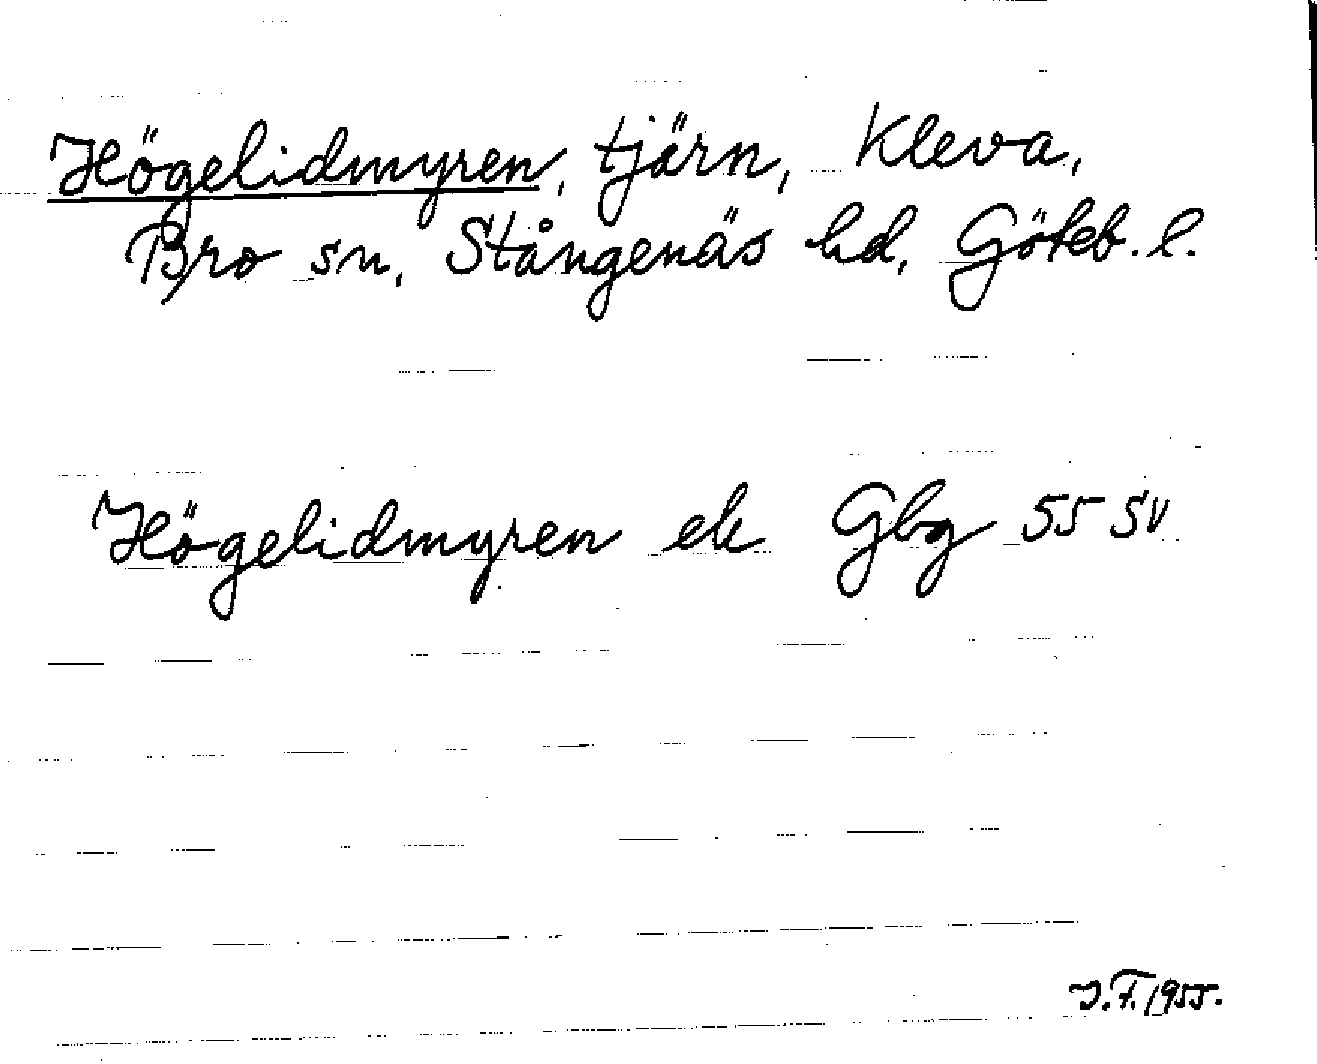 Högelidmyren, tjärn, Kleva,
Bro sn, Stångenäs hd, Göteb. l.
Högelidmyren ek Gbg 55 SV
J.F. 1955.